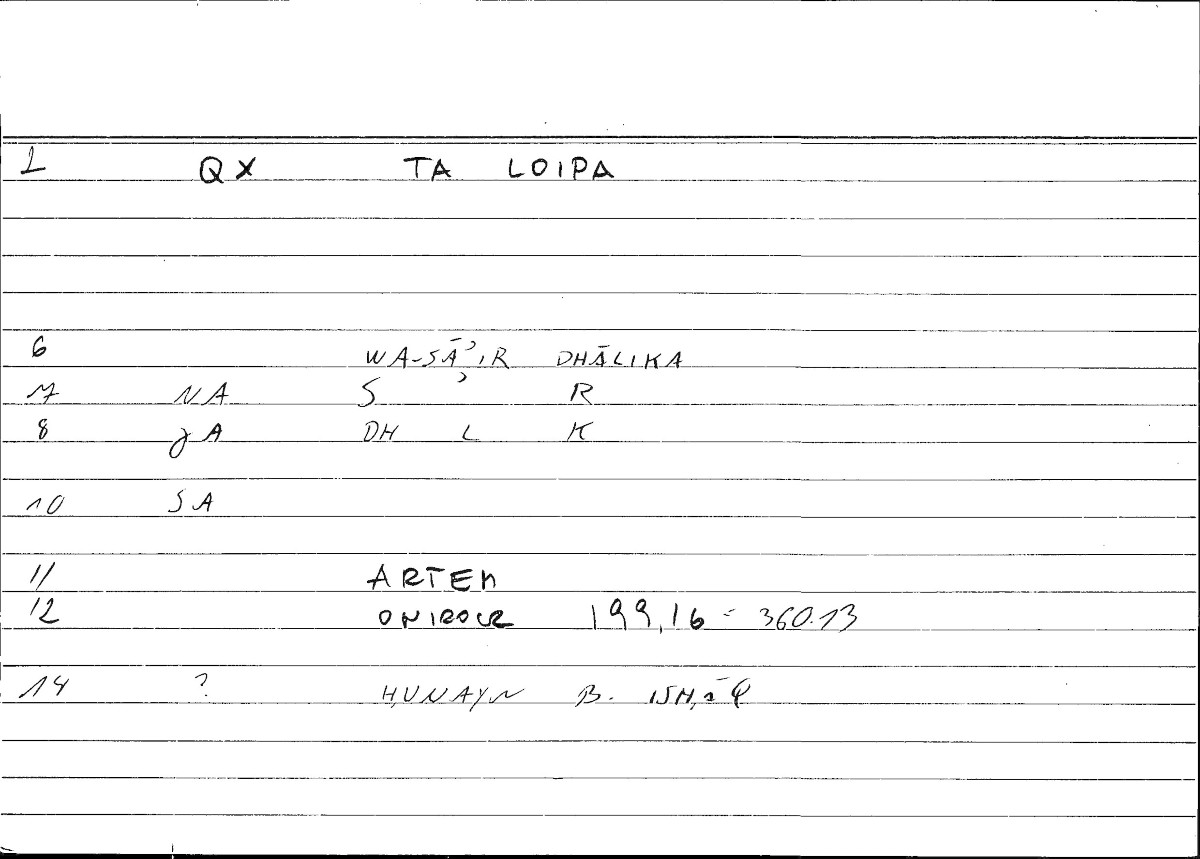 1 QX TA LOIPA
6 WA-SĀʾIR DHĀLIKA
7 NA S ʾ R
8 jA DH L K
10 SA
11 ARTEM
12 ONIROCR 199,16 = 360.13
14 ? ḤUNAYN B. ISḤāQ